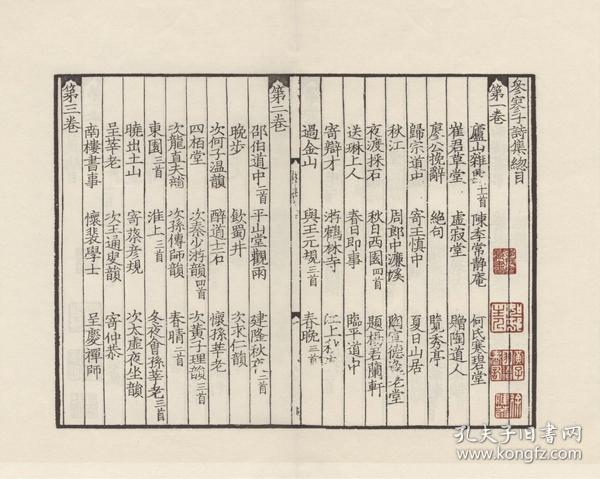 參寥子詩集總目
第一卷
廬山雜興十一首 陳季常靜庵 何氏寒碧堂
崔君草堂 虛寂堂 贈陶道人
廖公挽辭 絕句 覽秀亭
歸宗道中 寄王慎中 夏日山居
秋江 周郎中濂溪 陶宣德逸老堂
夜渡採石 秋日西園四首 題楊君蘭軒
送琳上人 春日即事 臨平道中
寄辯才 游鶴林寺 江上秋夜
過金山 與王元規三首 春晚三首
第二卷
邵伯道中二首 平山堂觀雨 建隆秋夜二首
晚步 飲蜀井 次求仁韻
次何子温韻 醉道士石 懷孫莘老
四栢堂 次秦少游韻四首 次黃子理韻三首
次龍直夫韻 次孫傳師韻 春晴二首
東園三首 淮上三首 冬夜會孫莘老三首
曉出土山 寄蔡彥規 次太虛夜坐韻
呈莘老 次王通叟韻 寄仲恭
南樓書事 懷裴學士 呈慶禪師
第三卷
孔夫子旧书网
www.kongfz.com